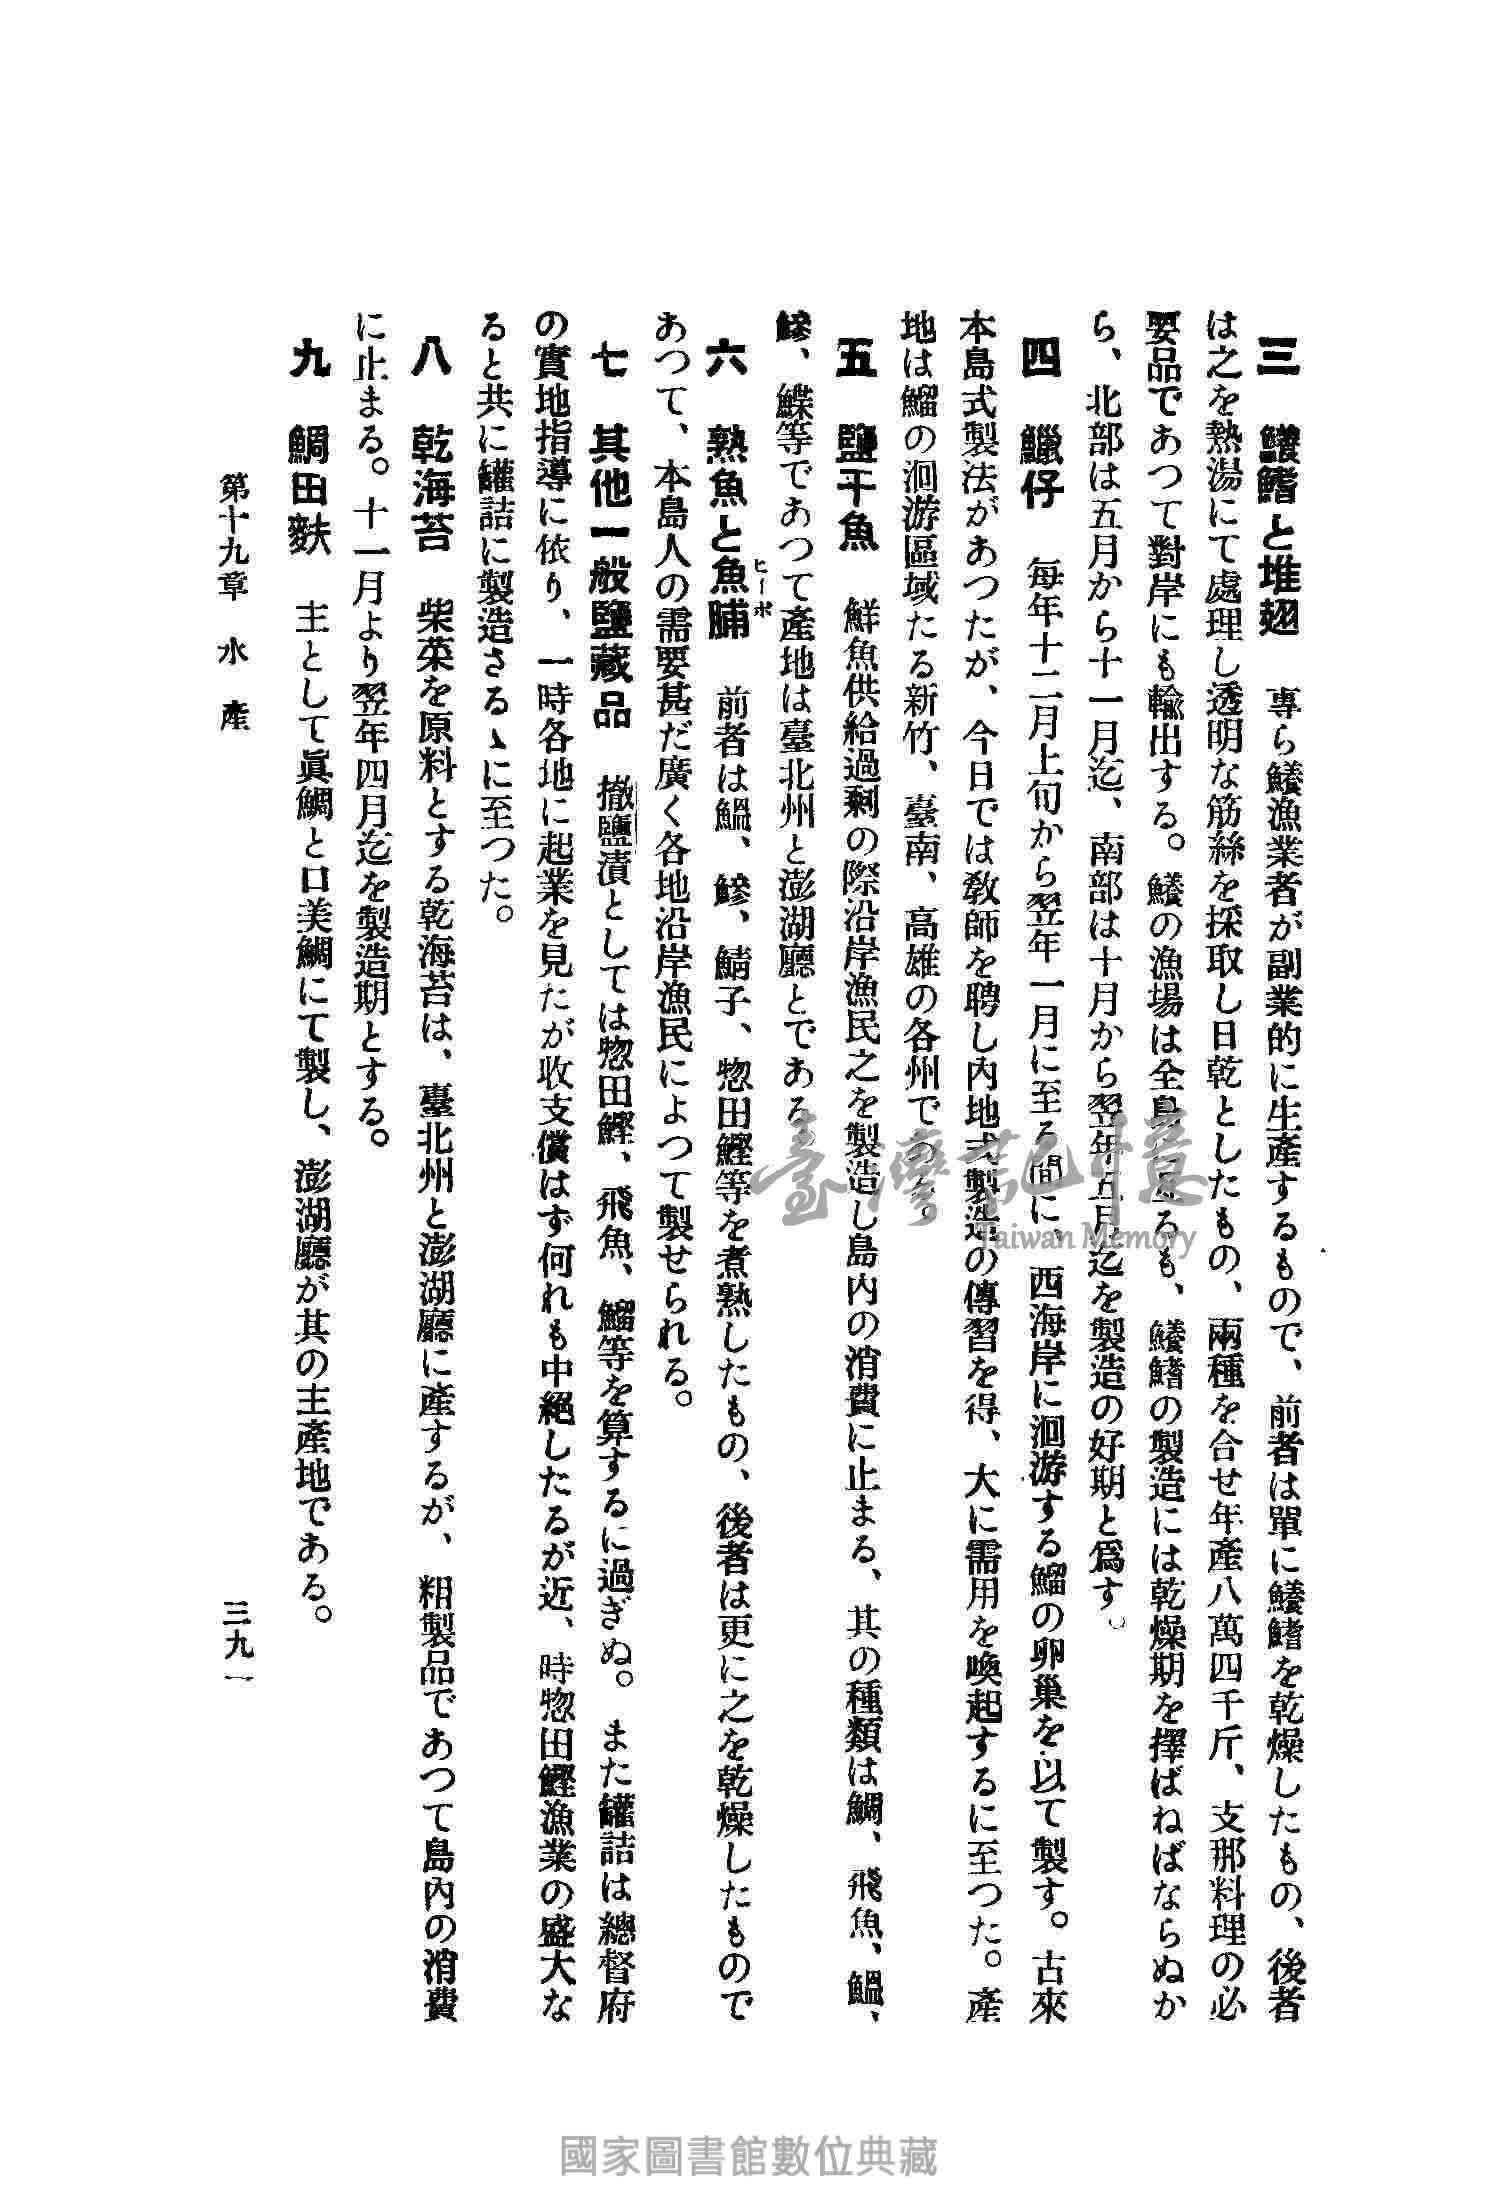 三　鱶鰭と堆翅　專ら鱶漁業者が副業的に生產するもので、前者は單に鱶鰭を乾燥したもの、後者
は之を熱湯にて處理し透明な筋絲を採取し日乾としたもの、兩種を合せ年產八萬四千斤、支那料理の必
要品であつて對岸にも輸出する。鱶の漁場は全島に亘るも、鱶鰭の製造には乾燥期を擇ばねばならぬか
ら、北部は五月から十一月迄、南部は十月から翌年五月迄を製造の好期と爲す。
四　鱲仔　每年十二月上旬から翌年一月に至る間に、西海岸に洄游する鰡の卵巢を以て製す。古來
本島式製法があつたが、今日では敎師を聘し內地式製造の傳習を得、大に需用を喚起するに至つた。產
地は鰡の洄游區域たる新竹、臺南、高雄の各州である。
五　鹽干魚　鮮魚供給過剩の際沿岸漁民之を製造し島內の消費に止まる、其の種類は鯛、飛魚、鰮、
鰺、鰈等であつて產地は臺北州と澎湖廳とである。
六　熟魚と魚脯　前者は鰮、鰺、鯖子、惣田鰹等を煮熟したもの、後者は更に之を乾燥したもので
ヒーポ
あつて、本島人の需要甚だ廣く各地沿岸漁民によつて製せられる。
七　其他一般鹽藏品　撤鹽漬としては惣田鰹、飛魚、鰡等を算するに過ぎぬ。また罐詰は總督府
の實地指導に依り、一時各地に起業を見たが收支償はず何れも中絕したるが近、時惣田鰹漁業の盛大な
ると共に罐詰に製造さるゝに至つた。
八　乾海苔　柴菜を原料とする乾海苔は、臺北州と澎湖廳に產するが、粗製品であつて島內の消費
に止まる。十一月より翌年四月迄を製造期とする。
九　鯛田麩　主として眞鯛と口美鯛にて製し、澎湖廳が其の主產地である。
第十九章　水　產
三九一
臺灣記憶
Taiwan Memory
國家圖書館數位典藏